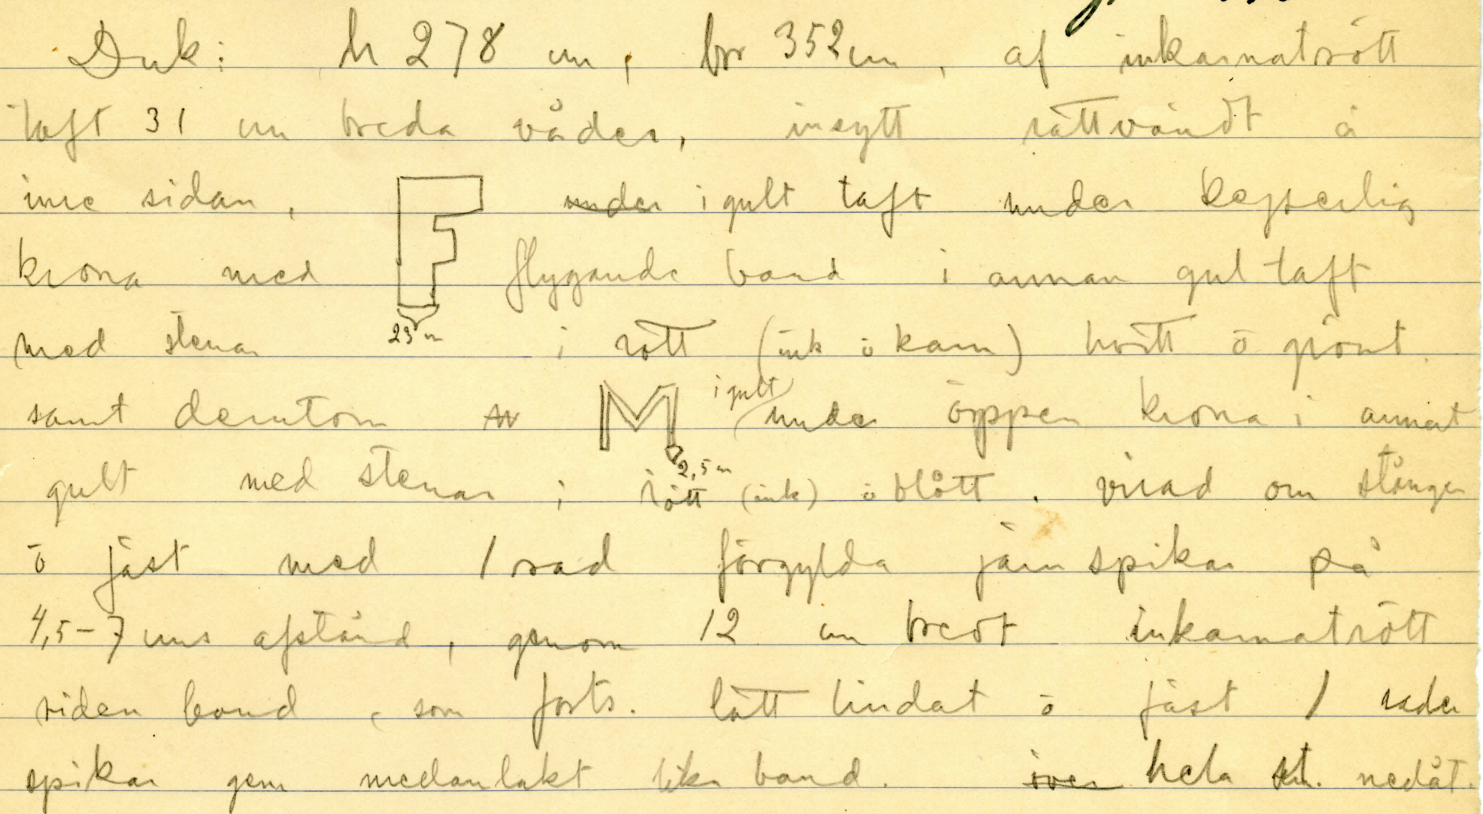 Duk: h 278 cm, br 352 cm, af inkarnatrött
taft 31 cm breda våder, insytt rättvändt å
inre sidan, F under i gult taft under kejserlig
krona med flygande band i annan gul taft
med stenar 23 cm i rött (ink ö karm) hvitt ö grönt
samt derutom M i gult under öppen krona i annat
gult med stenar i rött 2,5 cm (ink) ö blått. virad om stången
ö fäst med 1 rad förgyllda järnspikar på
4,5-7 cms afstånd, genom 12 cm bredt inkarnatrött
siden band, som forts. lätt lindat ö fäst 1 rader
spikar gen medanlakt band. över hela st. nedåt.